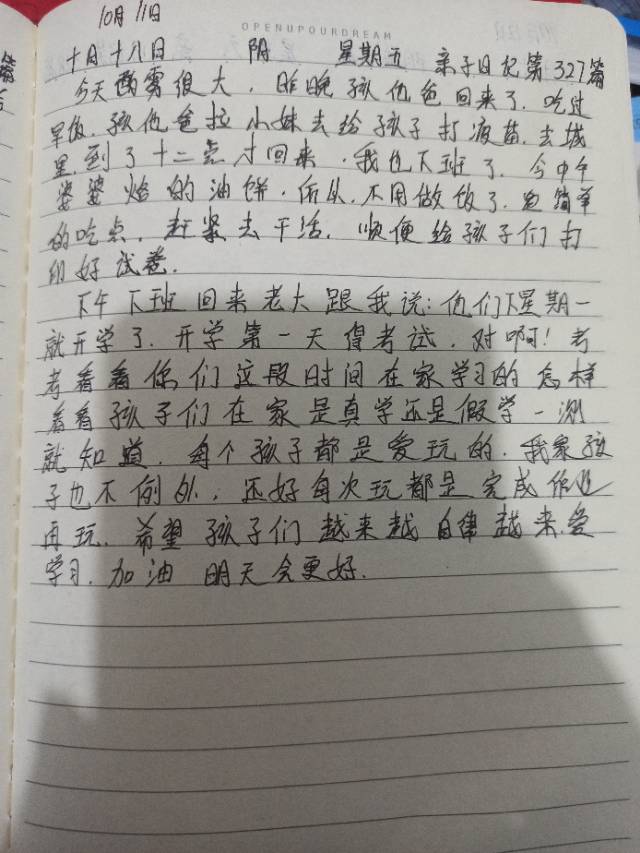 10月11日
OPENUPOURDREAM
十月十八日 阴 星期五 亲子日记第327篇
今天酚雾很大，昨晚孩他爸回来了，吃过
早饭，孩他爸拉小妹去给孩子打疫苗，去城
里，到了十二点才回来，我也下班了，今中午
婆婆烙的油饼，所以，不用做饭了，简单
的吃点，赶紧去干活，顺便给孩子们打
印好试卷。
下午下班回来老大跟我说：他们下星期一
就开学了，开学第一天得考试，对啊！考
考看看你们这段时间在家学习的怎样
看看孩子们在家是真学还是假学一测
就知道，每个孩子都是爱玩的，我家孩
子也不例外，还好每次玩都是完成作业
再玩，希望孩子们越来越自律越来爱
学习，加油 明天会更好。